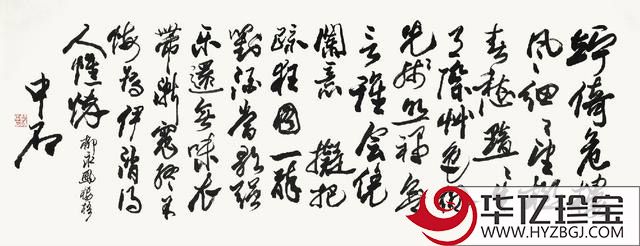 竚倚危楼
风细々望极
春愁黯々生
天际草色烟
光残照里无
言谁会凭
阑意 拟把
疏狂图一醉
对酒当歌强
乐还无味衣
带渐宽终不
悔为伊消得
人憔悴
柳永凤栖梧
中石
华亿珍宝
WWW.HYZBGJ.COM